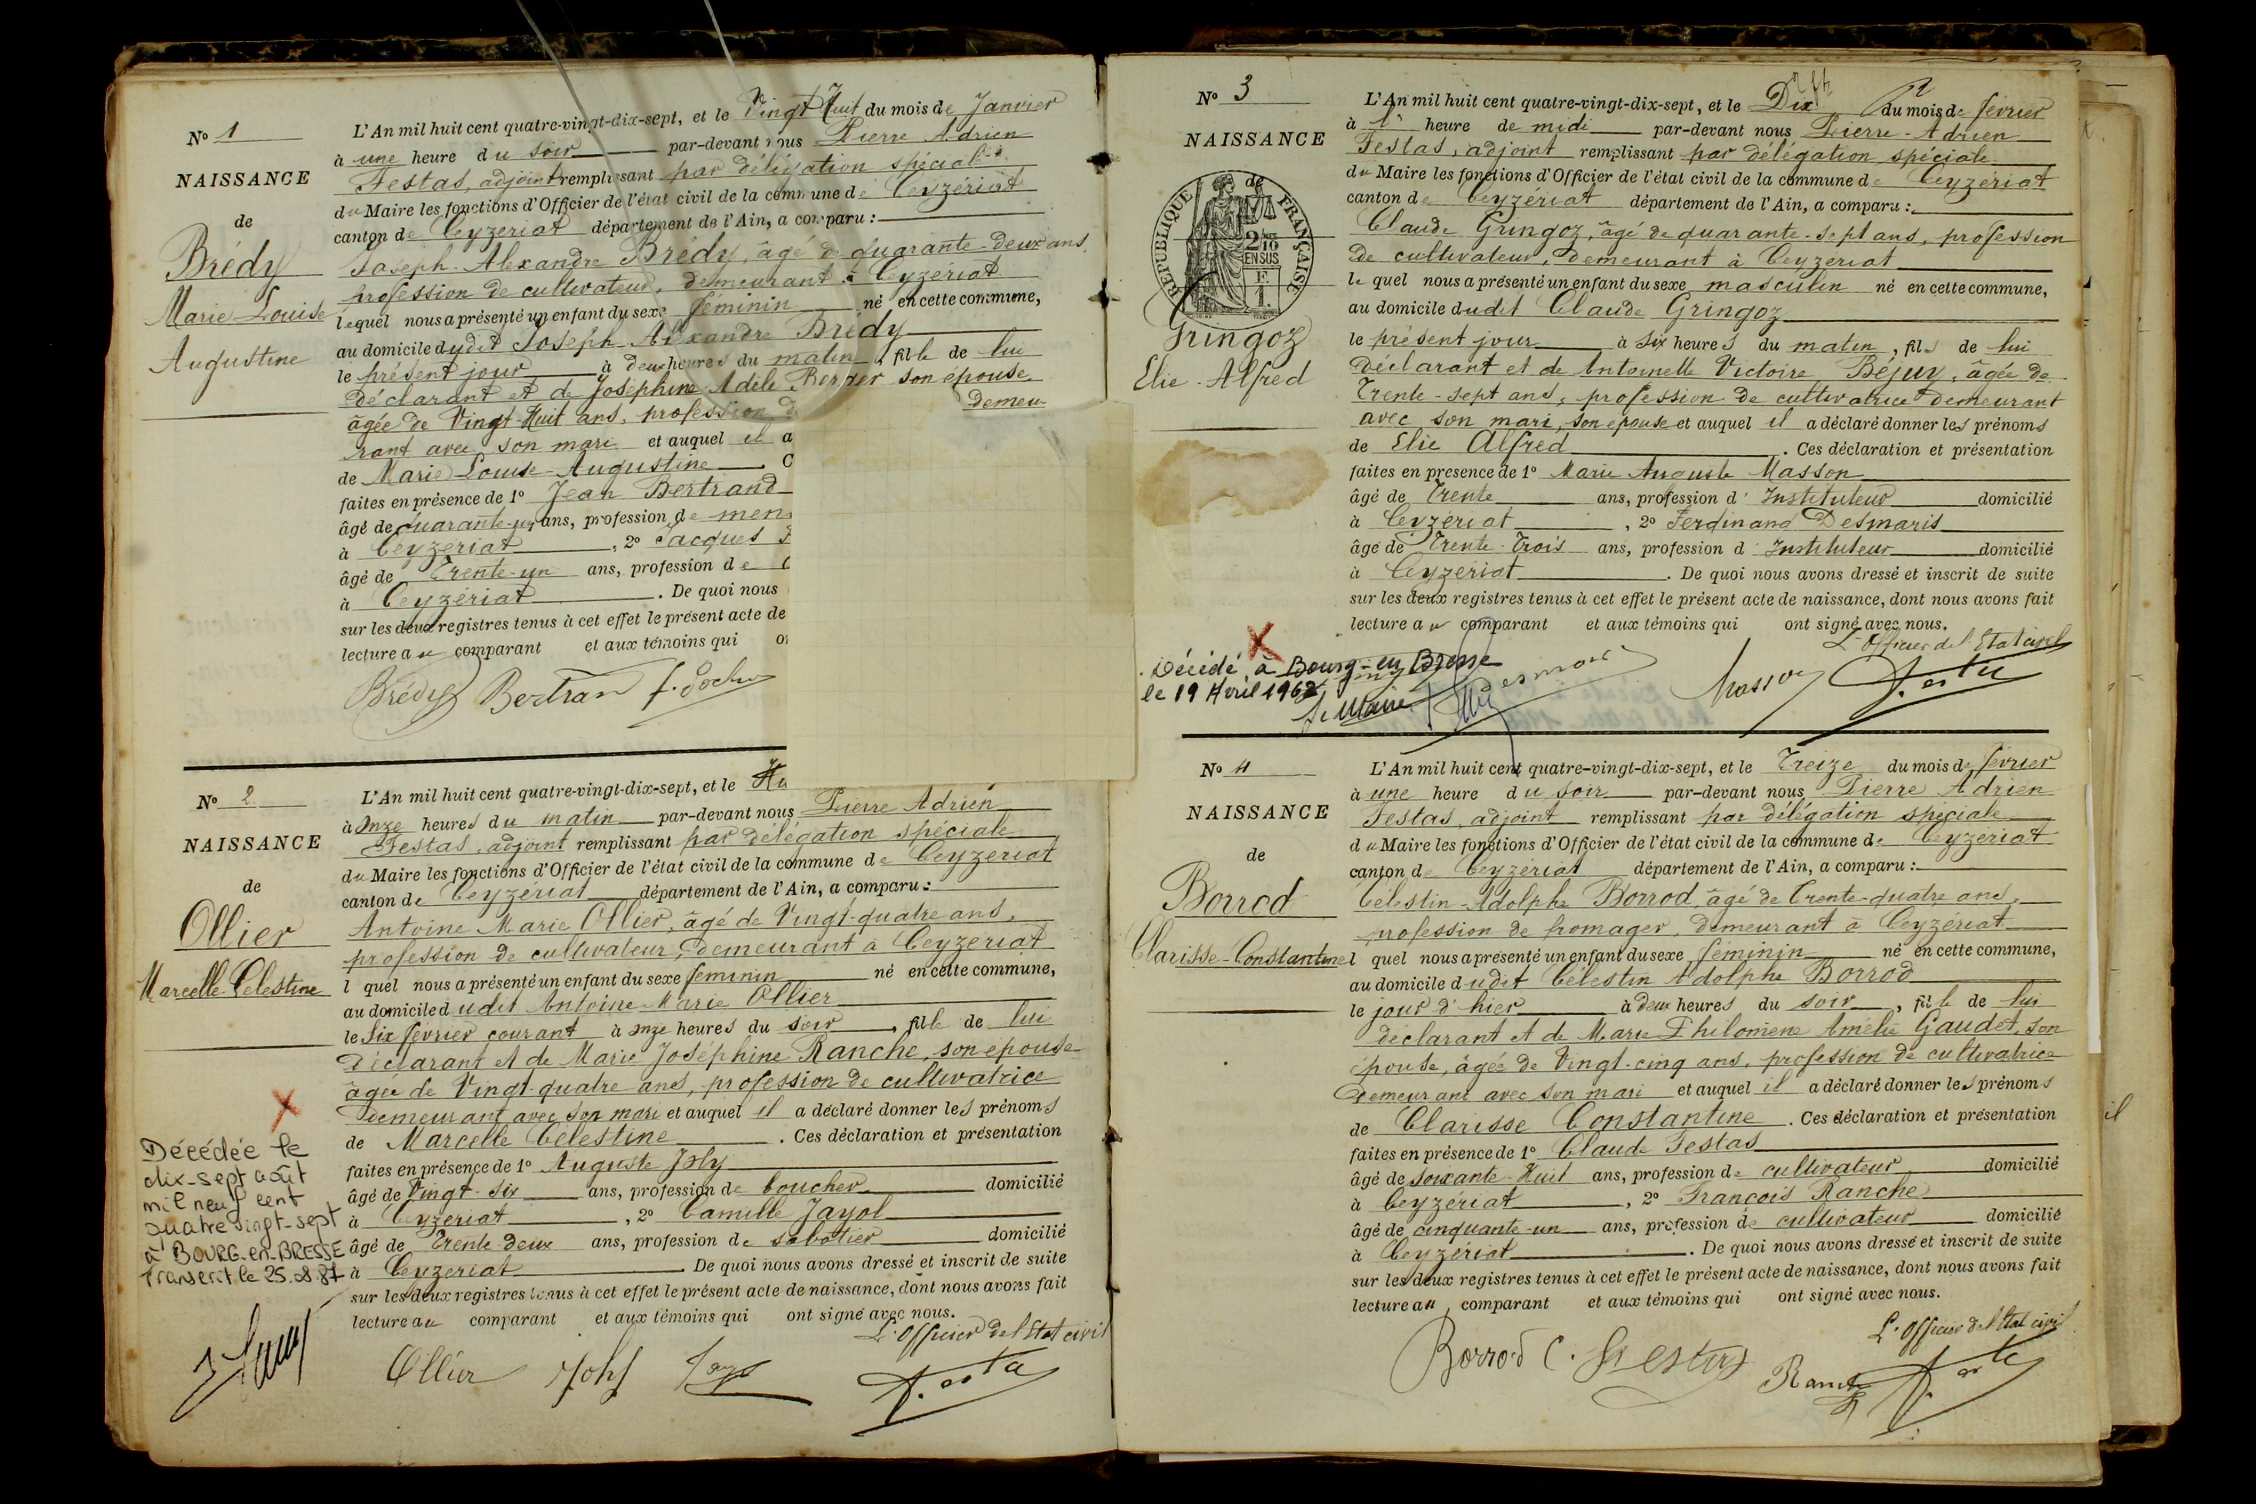 No 1
NAISSANCE
de
Brédy
Marie Louise
Augustine
L'An mil huit cent quatre-vingt-dix-sept, et le Vingt Huit du mois de Janvier
à une heure du soir par-devant nous Pierre Adrien
Festas, adjoint remplissant par délégation spéciale
du Maire les fonctions d'Officier de l'état civil de la commune de Ceyzériat
canton de Ceyzériat département de l'Ain, a comparu :
Joseph Alexandre Brédy, âgé de quarante-deux ans,
profession de cultivateur, demeurant à Ceyzériat
lequel nous a présenté un enfant du sexe féminin né en cette commune,
au domicile dudit Joseph Alexandre Brédy
le présent jour à deux heures du matin, fille de lui
déclarant et de Joséphine Adèle Berger son épouse
âgée de Vingt-Huit ans, profession d demeu
rant avec son mari et auquel il a
de Marie Louise Augustine . C
faites en présence de 1o Jean Bertrand
âgé de quarante-un ans, profession de men
à Ceyzériat, 2o Jacques
âgé de Trente-un ans, profession de
à Ceyzériat. De quoi nous
sur les deux registres tenus à cet effet le présent acte de
lecture au comparant et aux témoins qui
Brédy Bertran
No 2
NAISSANCE
de
Ollier
Marcelle Célestine
Décédée le
dix-sept août
mil neuf cent
quatre vingt-sept
à BOURG-en-BRESSE
Transcrit le 25.08.87
L'An mil huit cent quatre-vingt-dix-sept, et le Hu
à onze heures du matin par-devant nous Pierre Adrien
Festas, adjoint remplissant par délégation spéciale
du Maire les fonctions d'Officier de l'état civil de la commune de Ceyzériat
canton de Ceyzériat département de l'Ain, a comparu :
Antoine Marie Ollier, âgé de Vingt-quatre ans,
profession de cultivateur, demeurant à Ceyzériat
l quel nous a présenté un enfant du sexe féminin né en cette commune,
au domicile dudit Antoine Marie Ollier
le six février courant à onze heures du soir, fille de lui
déclarant et de Marie Joséphine Ranche, son épouse
âgée de Vingt-quatre ans, profession de cultivatrice
demeurant avec son mari et auquel il a déclaré donner les prénoms
de Marcelle Célestine. Ces déclaration et présentation
faites en présence de 1o Auguste Joly
âgé de Vingt-six ans, profession de boucher domicilié
à Ceyzériat, 2o Camille Jayol
âgé de Trente-deux ans, profession de sabotier domicilié
à Ceyzériat. De quoi nous avons dressé et inscrit de suite
sur les deux registres tenus à cet effet le présent acte de naissance, dont nous avons fait
lecture au comparant et aux témoins qui ont signé avec nous.
L'Officier de l'Etat civil
Ollier
No 3
NAISSANCE
de
RÉPUBLIQUE FRANÇAISE
2/10
EN SUS
F.
1.
Gringoz
Elie Alfred
L'An mil huit cent quatre-vingt-dix-sept, et le Dix sept du mois de février
à 1 heure de midi par-devant nous Pierre Adrien
Festas, adjoint remplissant par délégation spéciale
du Maire les fonctions d'Officier de l'état civil de la commune de Ceyzériat
canton de Ceyzériat département de l'Ain, a comparu :
Claude Gringoz, âgé de quarante-sept ans, profession
de cultivateur, demeurant à Ceyzériat
le quel nous a présenté un enfant du sexe masculin né en cette commune,
au domicile dudit Claude Gringoz
le présent jour à six heures du matin, fils de lui
déclarant et de Antoinette Victoire Béjuy, âgée de
Trente-sept ans, profession de cultivatrice demeurant
avec son mari, son épouse et auquel il a déclaré donner les prénoms
de Elie Alfred. Ces déclaration et présentation
faites en présence de 1o Marie Auguste Masson
âgé de Trente ans, profession d'Instituteur domicilié
à Ceyzériat, 2o Ferdinand Desmaris
âgé de Trente-Trois ans, profession d'Instituteur domicilié
à Ceyzériat. De quoi nous avons dressé et inscrit de suite
sur les deux registres tenus à cet effet le présent acte de naissance, dont nous avons fait
lecture au comparant et aux témoins qui ont signé avec nous.
L'Officier de l'Etat civil
Décédé, à Bourg-en-Bresse
le 19 Avril 1962
Le Maire
Masson
No 4
NAISSANCE
de
Borrod
Clarisse-Constantine
L'An mil huit cent quatre-vingt-dix-sept, et le Treize du mois de février
à une heure du soir par-devant nous Pierre Adrien
Festas, adjoint remplissant par délégation spéciale
du Maire les fonctions d'Officier de l'état civil de la commune de Ceyzériat
canton de Ceyzériat département de l'Ain, a comparu :
Célestin Adolphe Borrod, âgé de Trente-quatre ans,
profession de fromager, demeurant à Ceyzériat
l quel nous a présenté un enfant du sexe féminin né en cette commune,
au domicile dudit Célestin Adolphe Borrod
le jour d'hier à deux heures du soir, fille de lui
déclarant et de Marie Philomène Amélie Gaudet, son
épouse, âgée de Vingt-cinq ans, profession de cultivatrice
demeurant avec son mari et auquel il a déclaré donner les prénoms
de Clarisse Constantine. Ces déclaration et présentation
faites en présence de 1o Claude Festas
âgé de soixante-Huit ans, profession de cultivateur domicilié
à Ceyzériat, 2o François Ranche
âgé de cinquante-un ans, profession de cultivateur domicilié
à Ceyzériat. De quoi nous avons dressé et inscrit de suite
sur les deux registres tenus à cet effet le présent acte de naissance, dont nous avons fait
lecture au comparant et aux témoins qui ont signé avec nous.
L'Officier de l'Etat civil
Borrod C. Festas Ranche